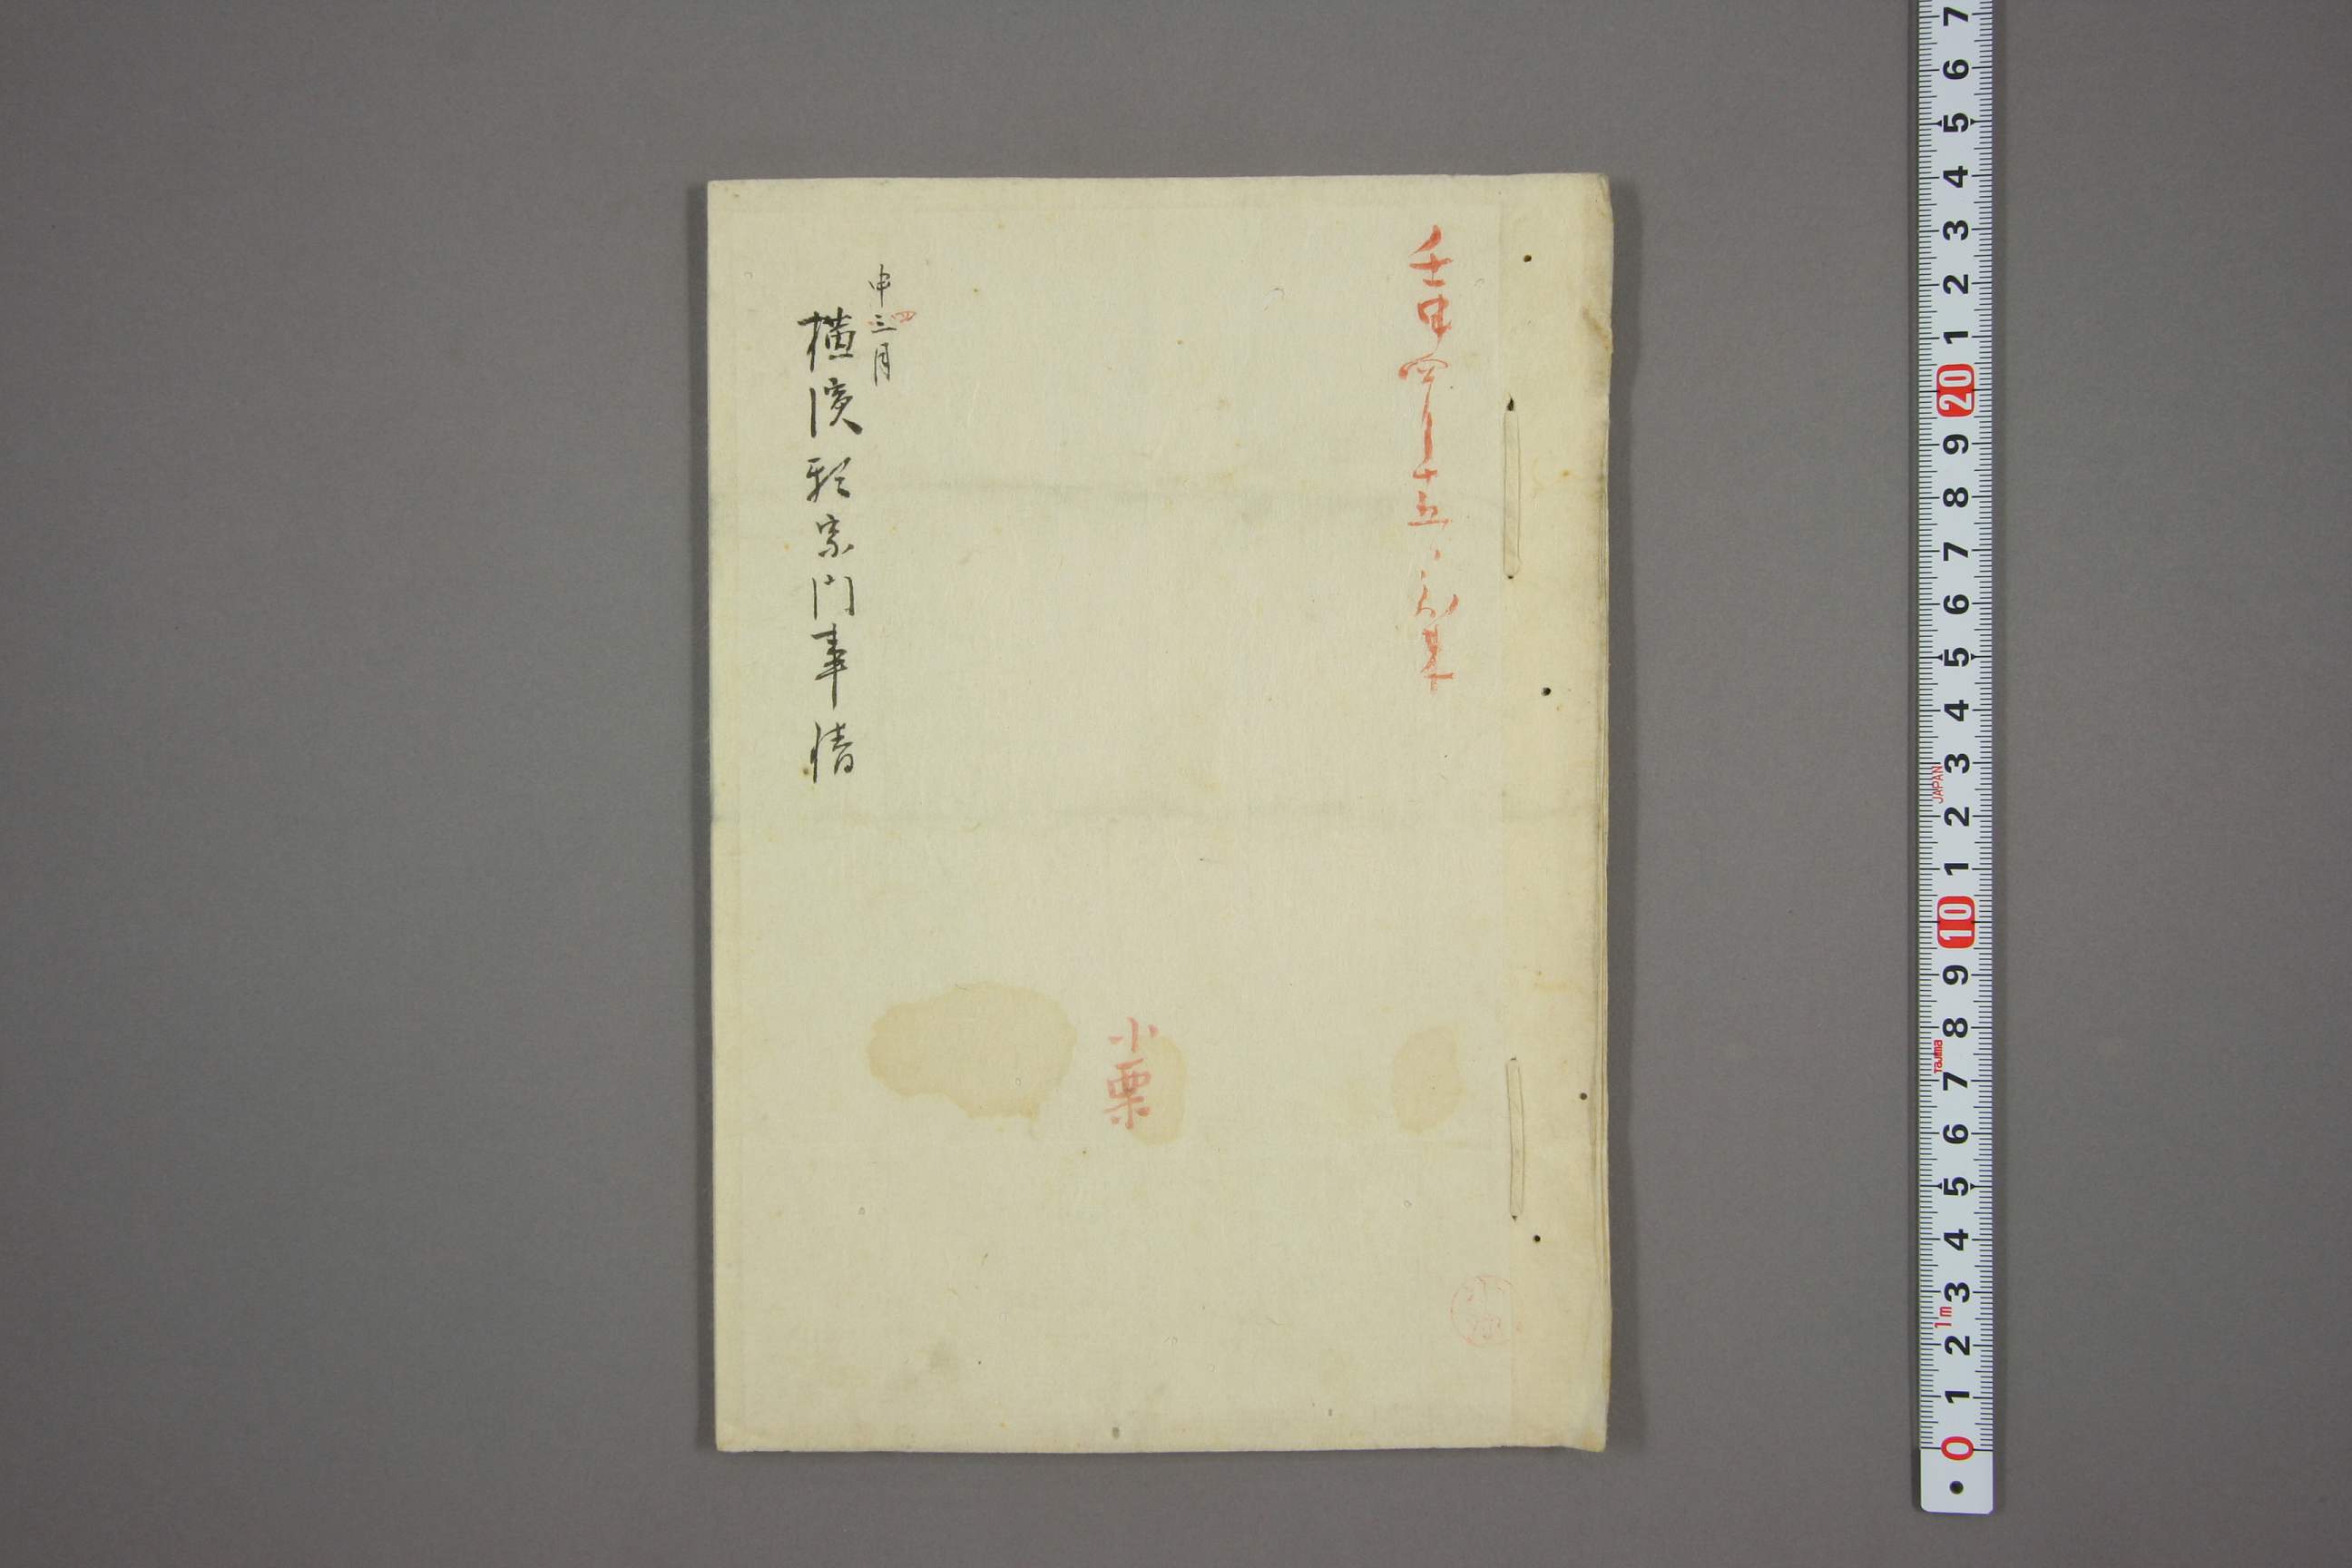 壬申四月十五日到来
申三月
四
横濱邪宗門事情
小栗
0 1 2 3 4 5 6 7 8 9 10 1 2 3 4 5 6 7 8 9 20 1 2 3 4 5 6 7
1m Tajima JAPAN